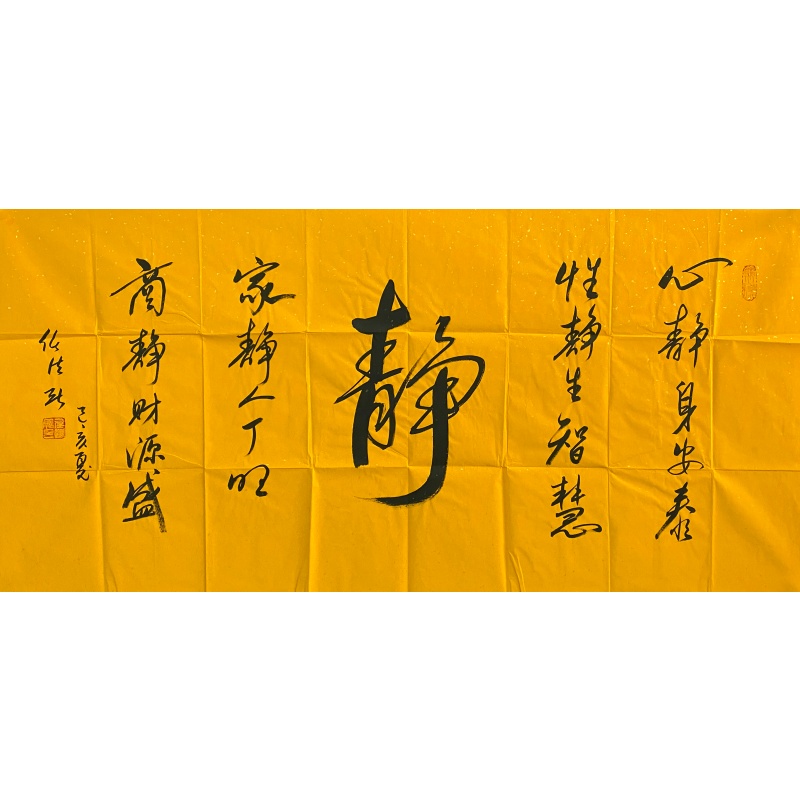 心静身安泰
性静生智慧
静
家静人丁旺
商静财源盛
己亥夏